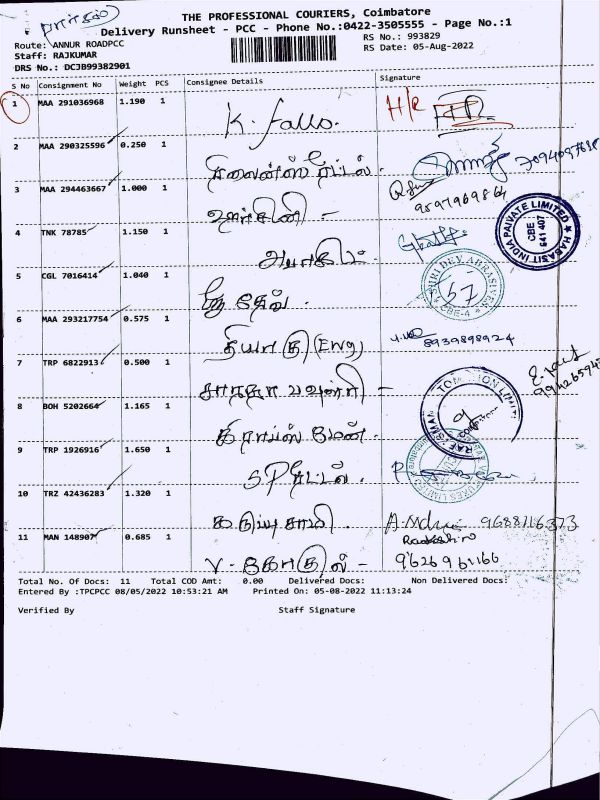 பார்சல்
THE PROFESSIONAL COURIERS, Coimbatore
Delivery Runsheet - PCC - Phone No.:0422-3505555 - Page No.:1
Route: ANNUR ROADPCC
RS No.: 993829
Staff: RAJKUMAR
RS Date: 05-Aug-2022
DRS No.: DCJB99382901
S No Consignment No Weight PCS Consignee Details Signature
1 MAA 291036968 1.190 1 K. fallo. H/R
2 MAA 290325596 0.250 1
3 MAA 294463667 1.000 1 9597969864
4 TNK 78785 1.150 1
HABASIT INDIA PAIVATE LIMITED CBE 641 407
5 CGL 7016414 1.040 1 ஸ்ரீ தேவ்.
SHRI DEV ABRASIVES CBE-4
6 MAA 293217754 0.575 1 தியாகு (Eng) 8939898924
7 TRP 6822913 0.500 1 சாரதா பவுன்ரி -
8 BOH 5202664 1.165 1 கிராப்ஸ் மேன்.
9 TRP 1926916 1.650 1 SP மெட்டல்.
10 TRZ 42436283 1.320 1 கருப்புசாமி. 9688716373
11 MAN 148907 0.685 1 V. கோகுல் - 9626961166
Total No. Of Docs: 11 Total COD Amt: 0.00 Delivered Docs: Non Delivered Docs:
Entered By :TPCPCC 08/05/2022 10:53:21 AM Printed On: 05-08-2022 11:13:24
Verified By Staff Signature